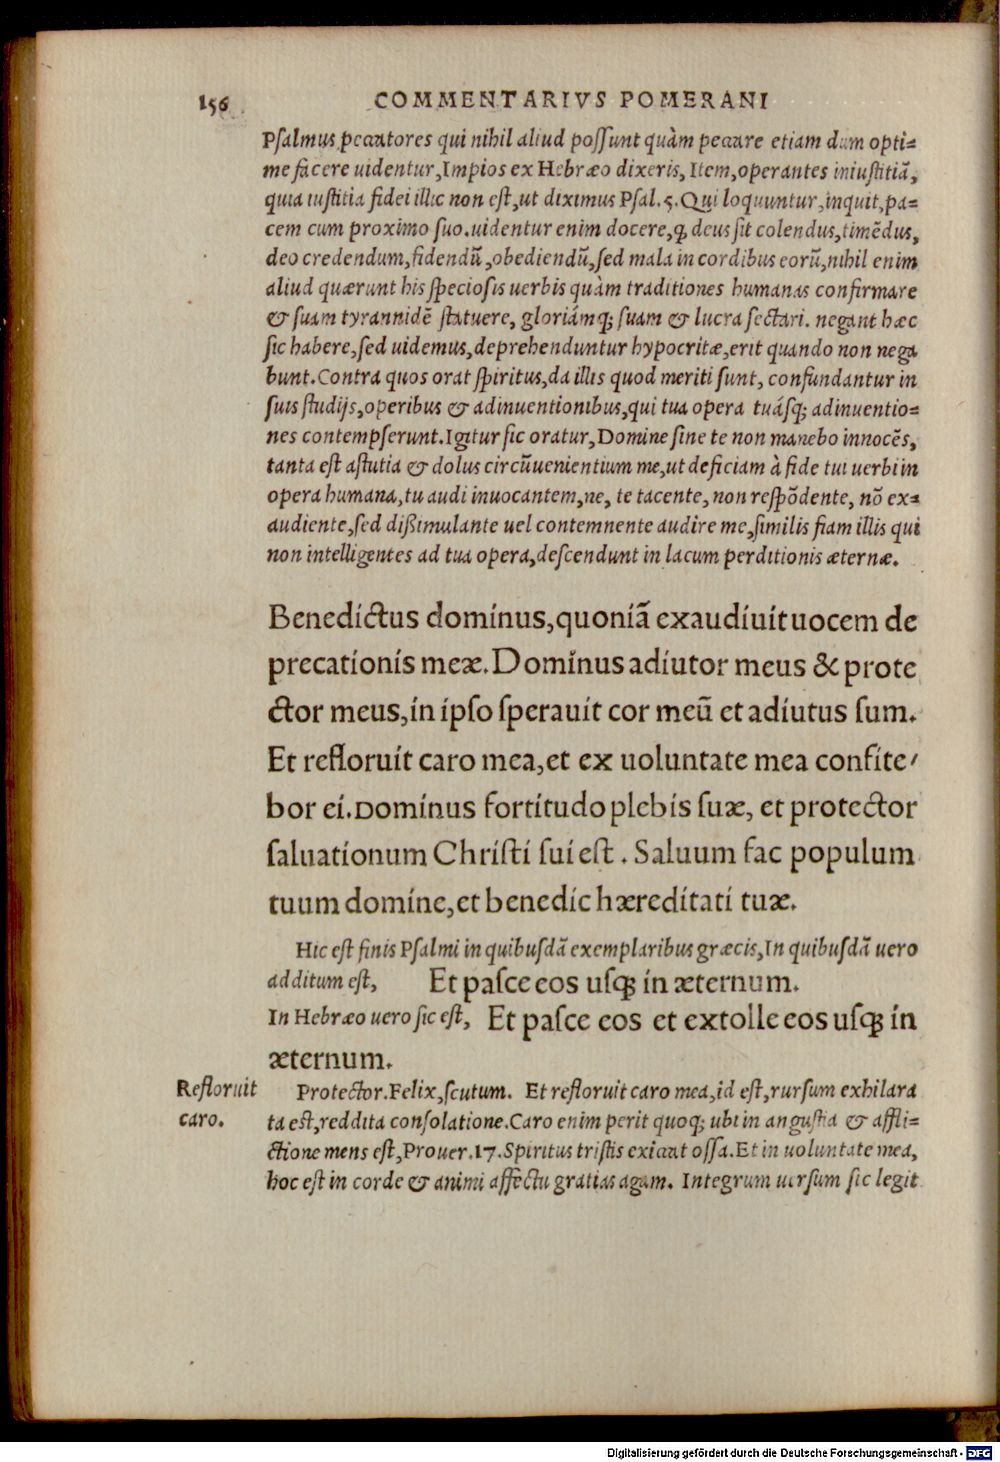 156 COMMENTARIVS POMERANI
Psalmus peccatores qui nihil aliud possunt quàm peccare etiam dum opti=
me facere uidentur, Impios ex Hebræo dixeris, Item, operantes iniustitiā,
quia iustitia fidei illic non est, ut diximus Psal. 5. Qui loquuntur, inquit, pa=
cem cum proximo suo. uidentur enim docere, ꝙ deus sit colendus, timēdus,
deo credendum, fidendū, obediendū, sed mala in cordibus eorū, nihil enim
aliud quærunt his speciosis uerbis quàm traditiones humanas confirmare
& suam tyrannidē statuere, gloriámꝗ; suam & lucra sectari. negant hæc
sic habere, sed uidemus, deprehenduntur hypocritæ, erit quando non nega
bunt. Contra quos orat spiritus, da illis quod meriti sunt, confundantur in
suis studijs, operibus & adinuentionibus, qui tua opera tuásꝗ; adinuentio=
nes contempserunt. Igitur sic oratur, Domine sine te non manebo innocēs,
tanta est astutia & dolus circūuenientium me, ut deficiam à fide tui uerbi in
opera humana, tu audi inuocantem, ne, te tacente, non respōdente, nō ex=
audiente, sed dißimulante uel contemnente audire me, similis fiam illis qui
non intelligentes ad tua opera, descendunt in lacum perditionis æternæ.
Benedictus dominus, quoniā exaudiuit uocem de
precationis meæ. Dominus adiutor meus & prote
ctor meus, in ipso sperauit cor meū et adiutus sum.
Et refloruit caro mea, et ex uoluntate mea confite/
bor ei. Dominus fortitudo plebis suæ, et protector
saluationum Christi sui est. Saluum fac populum
tuum domine, et benedic hæreditati tuæ.
Hic est finis Psalmi in quibusdā exemplaribus græcis, In quibusdā uero
additum est, Et pasce eos usꝗ; in æternum.
In Hebræo uero sic est, Et pasce eos et extolle eos usꝗ; in
æternum.
Refloruit
caro.
Protector. Felix, scutum. Et refloruit caro mea, id est, rursum exhilara
ta est, reddita consolatione. Caro enim perit quoꝗ; ubi in angustia & affli=
ctione mens est, Prouer. 17. Spiritus tristis exiccat ossa. Et in uoluntate mea,
hoc est in corde & animi affectu gratias agam. Integrum uersum sic legit
Digitalisierung gefördert durch die Deutsche Forschungsgemeinschaft - DFG